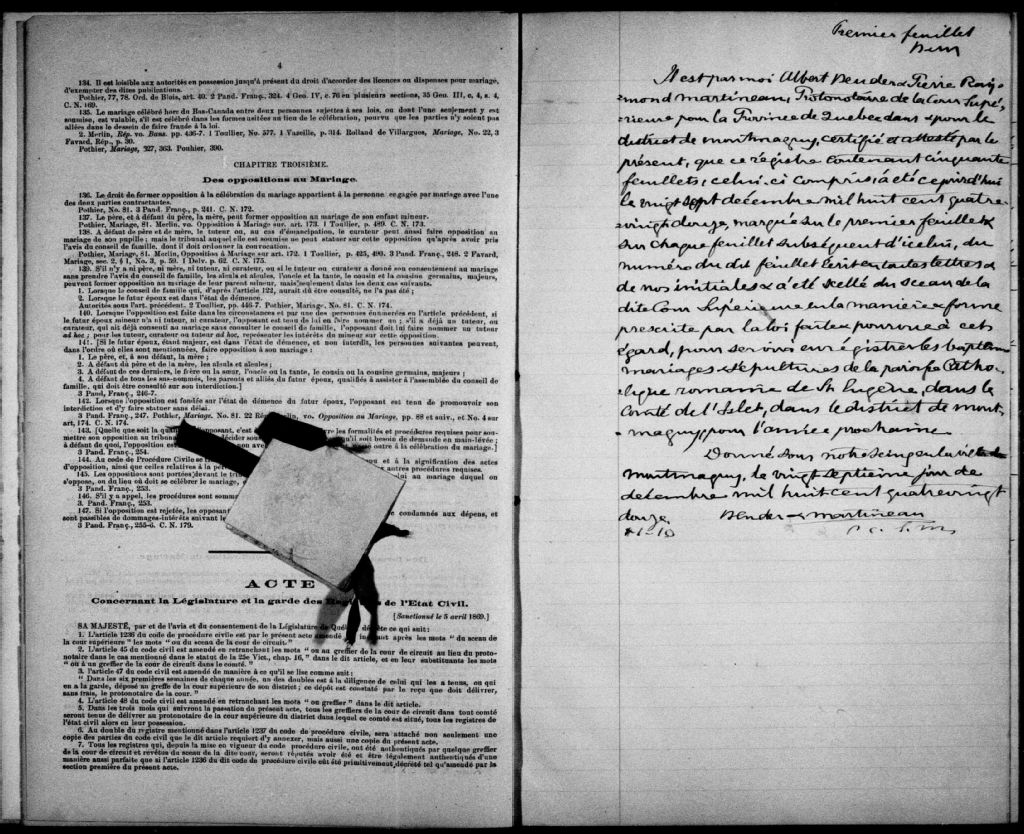 4
134. Il est loisible aux autorités en possession jusqu'à présent du droit d'accorder des licences ou dispenses pour mariage,
d'exempter des dites publications.
Pothier, 77, 78. Ord. de Blois, art. 40. 2 Pand. Franç., 324. 4 Geo. IV, c. 76 en plusieurs sections, 35 Geo. III, c. 4, s. 4,
C. N. 169.
135. Le mariage célébré hors du Bas-Canada entre deux personnes sujettes à ses lois, ou dont l'une seulement y est
soumise, est valable, s'il est célébré dans les formes usitées au lieu de la célébration, pourvu que les parties n'y soient pas
allées dans le dessein de faire fraude à la loi.
2. Merlin, Rép. vo. Bans. pp. 436-7. 1 Toullier, No. 577. 1 Vazeille, p. 314. Rolland de Villargues, Mariage, No. 22, 3
Favard, Rép., p. 30.
Pothier, Mariage, 327, 363. Pouhier, 390.
CHAPITRE TROISIÈME.
Des oppositions au Mariage.
136. Le droit de former opposition à la célébration du mariage appartient à la personne engagée par mariage avec l'une
des deux parties contractantes.
Pothier, No. 81. 3 Pand. Franç., p. 241. C. N. 172.
137. Le père, et à défaut du père, la mère, peut former opposition au mariage de son enfant mineur.
Pothier, Mariage, 81. Merlin. vo. Opposition à Mariage sur. art. 173. 1 Toullier, p. 489. C. N. 173.
138. A défaut de père et de mère, le tuteur ou, au cas d'émancipation, le curateur peut aussi faire opposition au
mariage de son pupille ; mais le tribunal auquel elle est soumise ne peut statuer sur cette opposition qu'après avoir pris
l'avis du conseil de famille, dont il doit ordonner la convocation.
Pothier, Mariage, 81. Merlin, vo. Opposition à Mariage sur art. 172. 1 Toullier, p. 425, 490. 3 Pand. Franç., 248. 2 Favard,
Mariage, sec. 2, § 1, No. 3, p. 59. 1 Delv. p. 62. C. N. 175.
139. S'il n'y a ni père, ni mère, ni tuteur, ni curateur, ou si le tuteur ou curateur a donné son consentement au mariage
sans prendre l'avis du conseil de famille, les aïeuls et aïeules, l'oncle et la tante, le cousin et la cousine germains, majeurs,
peuvent former opposition au mariage de leur parent mineur, mais seulement dans les deux cas suivants.
1. Lorsque le conseil de famille qui, d'après l'article 122, aurait dû être consulté, ne l'a pas été ;
2. Lorsque le futur époux est dans l'état de démence.
Autorités sous l'art. précédent. 2 Toullier, pp. 446-7. Pothier, Mariage, No. 81. C. N. 174.
140. Lorsque l'opposition est faite dans les circonstances et par une des personnes énumérées en l'article précédent, si
le futur époux mineur n'a ni tuteur, ni curateur, l'opposant est tenu de lui en faire nommer un ; s'il a déjà un tuteur, ou
curateur, qui ait déjà consenti au mariage sans consulter le conseil de famille, l'opposant doit lui faire nommer un tuteur
ad hoc ; pour les tuteur, curateur ou tuteur ad hoc, représenter les intérêts du mineur sur cette opposition
141. [Si le futur époux, étant majeur, est dans l'état de démence, et non interdit, les personnes suivantes peuvent,
dans l'ordre où elles sont mentionnées, faire opposition à son mariage :
1. Le père, et, à son défaut, la mère ;
2. A défaut du père et de la mère, les aïeuls et aïeules ;
3. A défaut de ces derniers, le frère ou la sœur, l'oncle ou la tante, le cousin ou la cousine germains, majeurs ;
4. A défaut de tous les sus-nommés, les parents et alliés du futur époux, qualifiés à assister à l'assemblée du conseil de
famille, qui doit être consulté sur son interdiction.]
3 Pand. Franç., 246-7.
142. Lorsque l'opposition est fondée sur l'état de démence du futur époux, l'opposant est tenu de promouvoir son
interdiction et d'y faire statuer sans délai.
3 Pand. Franç., 247. Pothier, Mariage, No. 81. 22 vo. Opposition au Mariage, pp. 88 et suiv., et No. 4 sur
art, 174. C. N. 174.
143. [Quelle que soit la opposant, c'est les formalités et procédures requises pour sou-
mettre son opposition au tribunal décider qu'il soit besoin de demande en main-levée ;
à défaut de quoi, l'opposition est outre à la célébration du mariage.]
3 Pand. Franç., 254.
144. Au code de Procédure Civile se et à la signification des actes
d'opposition, ainsi que celles relatives à la autres procédures requises.
145. Les oppositions sont portées devant le au mariage duquel on
s'oppose, ou du lieu où doit se célébrer le mariage,
3 Pand. Franç., 253.
146. S'il y a appel, les procédures sont
3. Pand. Franç., 253.
147. Si l'opposition est rejetée, les condamnés aux dépens, et
sont passibles de dommages-intérêts suivant
3 Pand. Franç., 255-6. C. N. 179.
ACTE
Concernant la Législature et la garde des de l'Etat Civil.
[Sanctionné le 5 avril 1869.]
SA MAJESTÉ, par et de l'avis et du consentement de la Législature de Québec, décrète ce qui suit:
1. L'article 1236 du code de procédure civile est par le présent acte amendé après les mots " du sceau de
la cour supérieure " les mots " ou du sceau de la cour de circuit."
2. L'article 45 du code civil est amendé en retranchant les mots " ou au greffier de la cour de circuit au lieu du proto-
notaire dans le cas mentionné dans le statut de la 25e Vict., chap. 16, " dans le dit article, et en leur substituant les mots
" ou à un greffier de la cour de circuit dans le comté."
3. l'article 47 du code civil est amendé de manière à ce qu'il se lise comme suit:
" Dans les six premières semaines de chaque année, un des doubles est à la diligence de celui qui les a tenus, ou qui
en a la garde, déposé au greffe de la cour supérieure de son district ; ce dépôt est constaté par le reçu que doit délivrer,
sans frais, le protonotaire de la cour."
4. L'article 48 du code civil est amendé en retranchant les mots " ou greffier " dans le dit article.
5. Dans les trois mois qui suivront la passation du présent acte, tous les greffiers de la cour de circuit dans tout comté
seront tenus de délivrer au protonotaire de la cour supérieure du district dans lequel ce comté est situé, tous les registres de
l'état civil alors en leur possession.
6. Au double du registre mentionné dans l'article 1237 du code de procédure civile, sera attaché non seulement une
copie des parties du code civil que le dit article requiert d'y annexer, mais aussi une copie du présent acte.
7. Tous les registres qui, depuis la mise en vigueur du code procédure civile, ont été authentiqués par quelque greffier
de la cour de circuit et revêtus du sceau de la dite cour, seront réputés avoir été et être légalement authentiqués d'une
manière aussi parfaite que si l'article 1236 du dit code de procédure civile eût été primitivement décrété tel qu'amendé par la
section première du présent acte.
Premier feuillet
Il est par moi Albert Bender & Pierre Ray-
mond Martineau, Protonotaire de la Cour Supé-
rieure pour la Province de Quebec dans & pour le
district de Montmagny, certifié & attesté par le
présent, que ce régistre contenant cinquante
feuillets, celui-ci compris, a été ce jourd'hui
le vingt sept décembre mil huit cent quatre
vingt douze, marqué sur le premier feuillet &
sur chaque feuillet subséquent d'icelui, du
numéro du dit feuillet écrit en toutes lettres &
de nos initiales & a été scellé du sceau de la
dite Cour Supérieure en la manière & forme
prescrite par la loi faite & pourvue à cet
égard, pour servir à enrégistrer les baptêmes
mariages & sépultures de la paroisse Catho-
lique romaine de St Eugène, dans le
Comté de l'Islet, dans le district de Mont-
magny pour l'année prochaine
Donné sous notre seing en la ville de
Montmagny, le vingt septième jour de
décembre mil huit cent quatre vingt
douze. Bender & Martineau